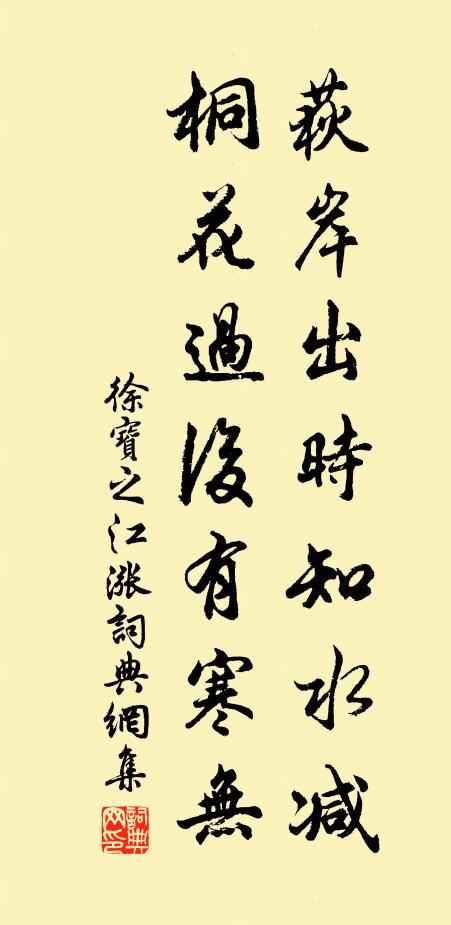 荻岸出時知水减
桐花過後有寒無
徐寶之江漲詞典網集
詞典网印